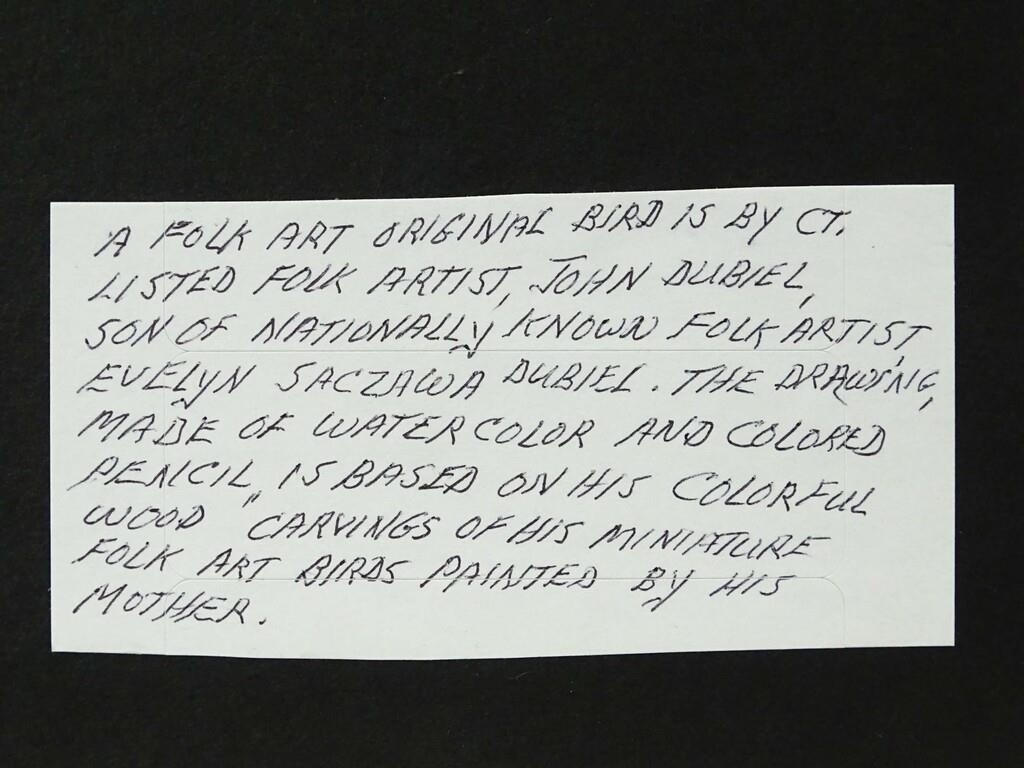 A FOLK ART ORIGINAL BIRD IS BY CT.
LISTED FOLK ARTIST, JOHN DUBIEL,
SON OF NATIONALLY KNOWN FOLK ARTIST,
EVELYN SACZAWA DUBIEL. THE DRAWING,
MADE OF WATERCOLOR AND COLORED
PENCIL, IS BASED ON HIS COLORFUL
WOOD " CARVINGS OF HIS MINIATURE
FOLK ART BIRDS PAINTED BY HIS
MOTHER.